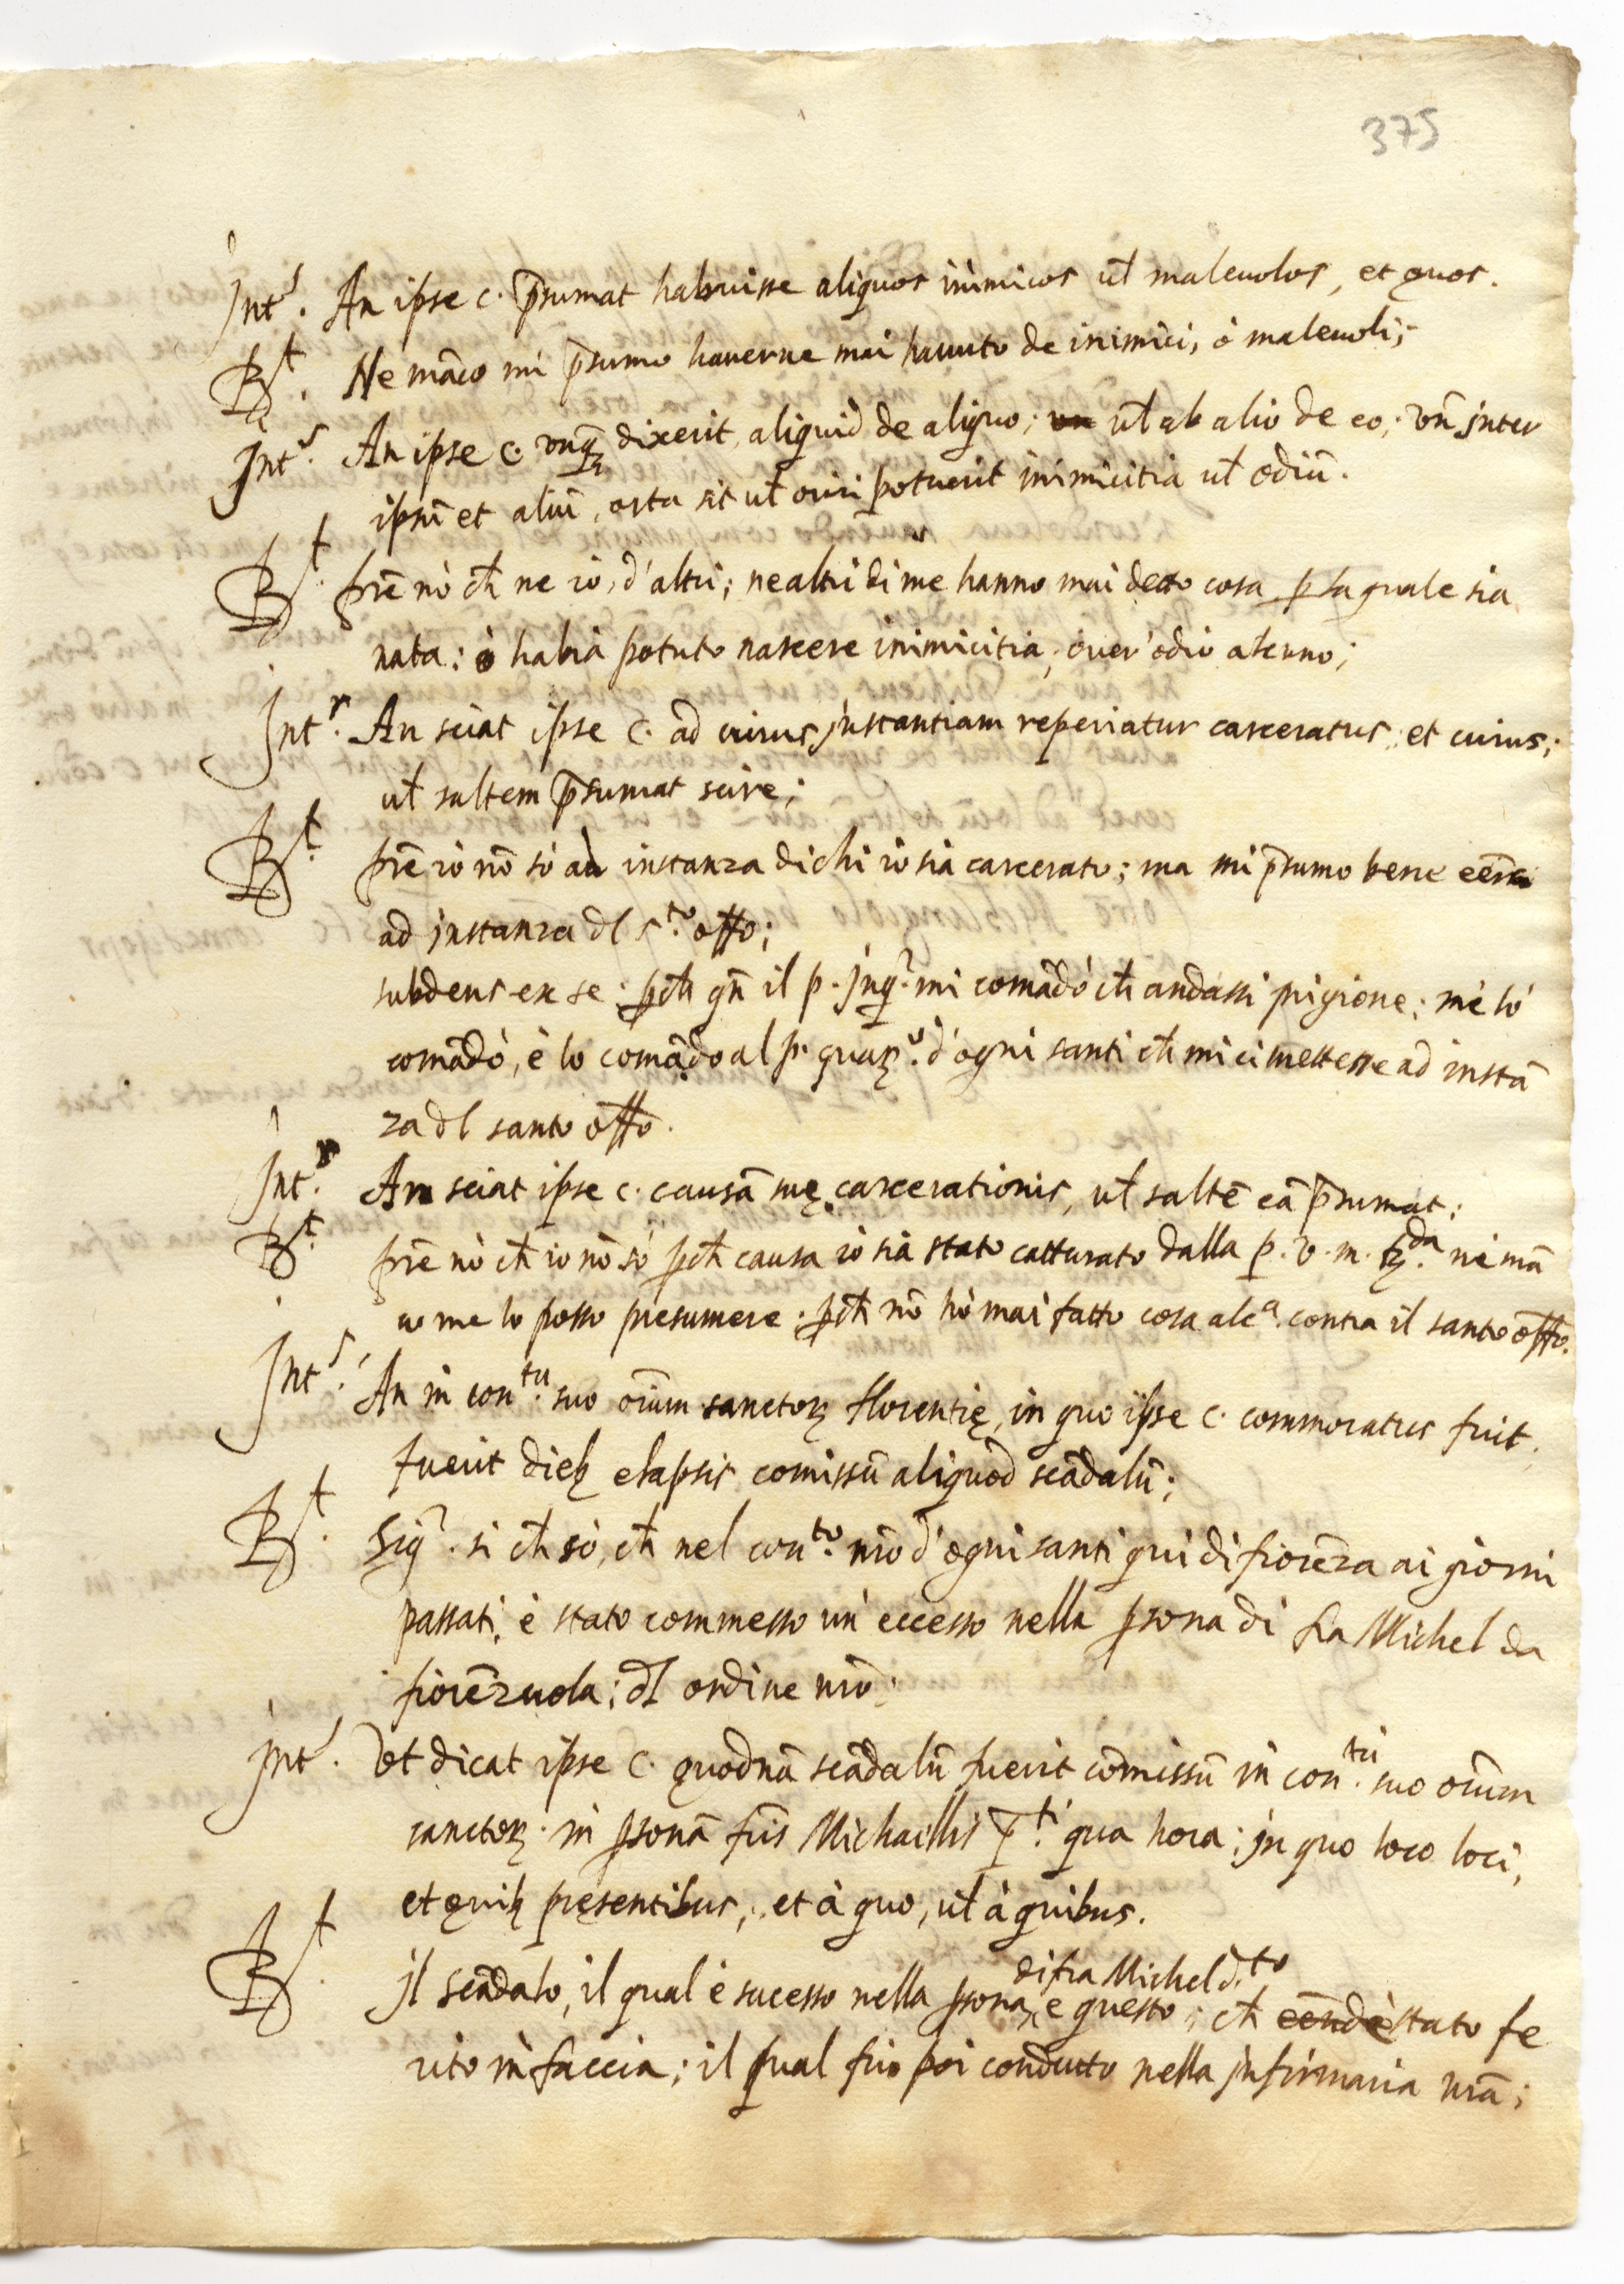 375
Int.r An ipse c. p̄sumat habuisse aliquos inimicos ul̄ maleuolos, et quos.
R.t Ne māco mi p̄sumo hauerne mai hauuto de inimici, ò maleuoli;
Int.s An ipse c. vnq̄ dixerit aliquid de aliquo; ul̄ ab alio de eo; vn̄ inter
ipsū et aliū, orta sit ul̄ oriri potuerit inimicitia ul̄ odiū.
R.t pr̄e nò ch̄ ne io, d'altri; ne altri di me hanno mai detto cosa ꝑ la quale sia
nata; ò habia potuto nascere inimicitia, ouer' odio alcuno;
Int.r An sciat ipse c. ad cuius instantiam reperiatur carceratus, et cuius;
ul̄ saltem p̄sumat scire;
R.t pr̄e io nō sò ad instanza di chi io sia carcerato; ma mi p̄sumo bene eēr
ad instanza dl s.to offo;
subdens ex se: ꝑch̄ qn̄ il p. inq.r mi comādò ch̄ andassi prigione; me lò
comādò, è lo comādo al p. guar.o d'ogni santi ch̄ mi ci mettesse ad instā
za dl santo offo.
Int.r An sciat ipse c. causā suę carcerationis, ul̄ saltē eā p̄sumat;
R.t pr̄e nò ch̄ io nō sò ꝑch̄ causa io sia stato catturato dalla p. v. m. R.da ne mā
co me lo posso presumere. ꝑch̄ nō hò mai fatto cosa alc.a contra il santo offo.
Int.s An in con.tu suo oīum sanctoꝝ florentię, in quo ipse c. commoratus fuit,
fuerit dieb; elapsis comissū aliquod scādalū;
R.t Sig.r si ch̄ sò, ch̄ nel con.to nr̄o d'ogni santi qui di fiorēza ai giorni
passati, è stato commesso un' eccesso nella ꝑsona di fra Michel da
fiorēzuola; dl ordine nr̄o;
Int.r Vt dicat ipse c. quodnā scādalū fuerit cōmissū in con.tu suo oīum
sanctoꝝ. in ꝑsonā fr̄is Michaellis p.ti qua hora; in quo loco loci,
et quib; pręsentibus, et à quo, ul̄ à quibus.
di fra Michel d.to
R.t Il scādalo, il qual è sucesso nella ꝑsona, e questo; ch̄ eēndo è stato fe
rito in faccia; il qual fu poi condutto nella infirmaria nr̄a;